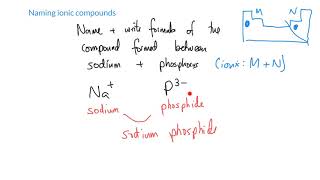 Naming ionic compounds
Name + write formula of the
compound formed between
sodium + phosphorus (ionic: M + N)
M N
Na⁺ P³⁻
sodium phosphide
sodium phosphide